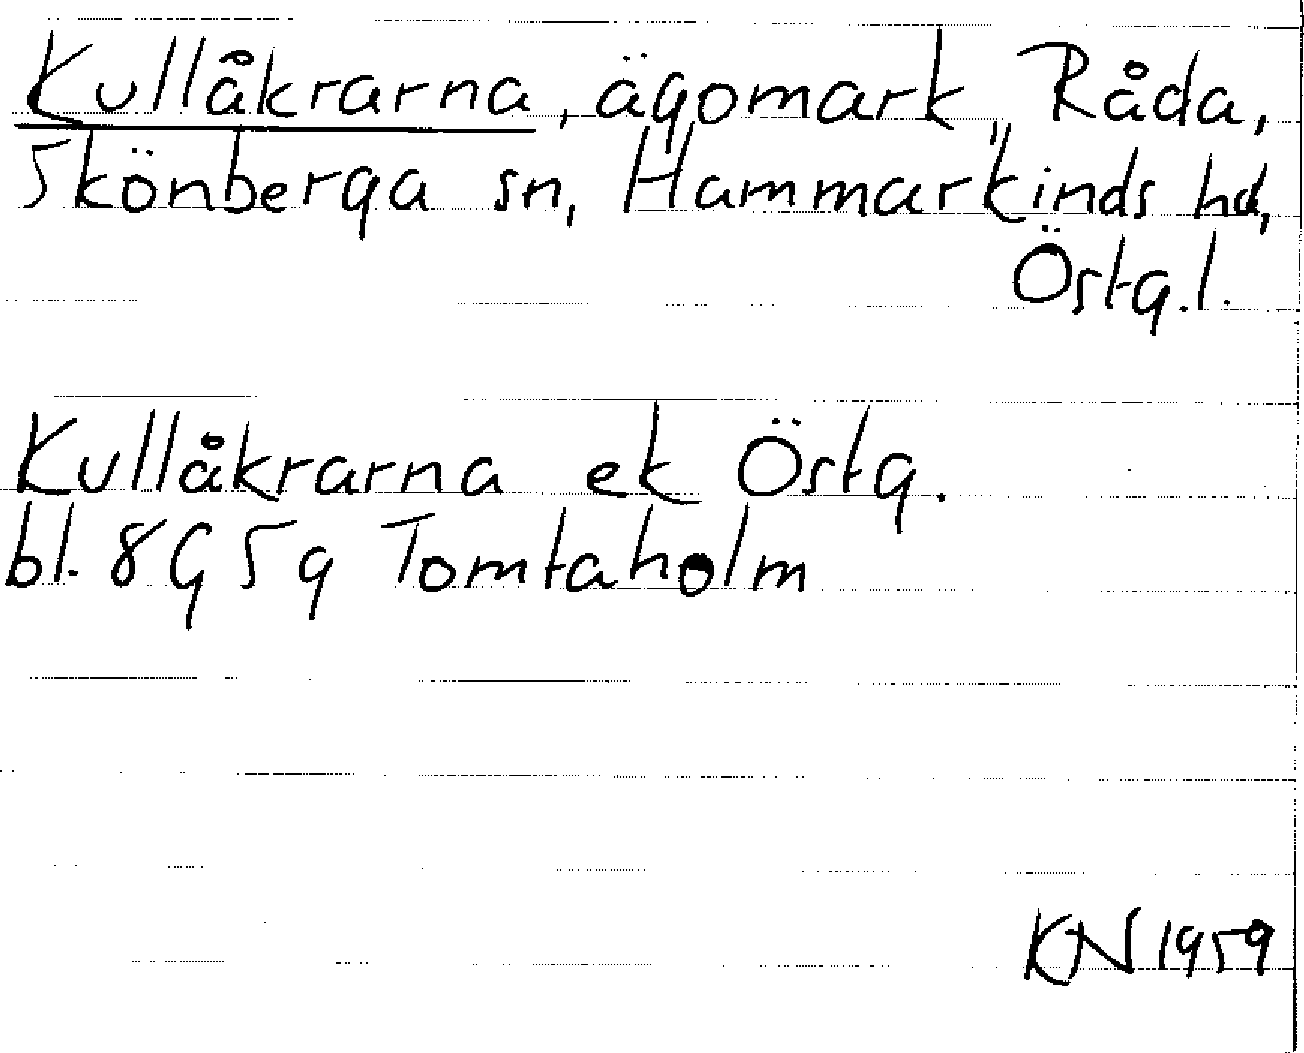 Kullåkrarna, ägomark, Råda,
Skönberga sn, Hammarkinds hd,
Östg.l.
Kullåkrarna ek Östg.
bl. 8G 5g Tomtaholm
KN 1959